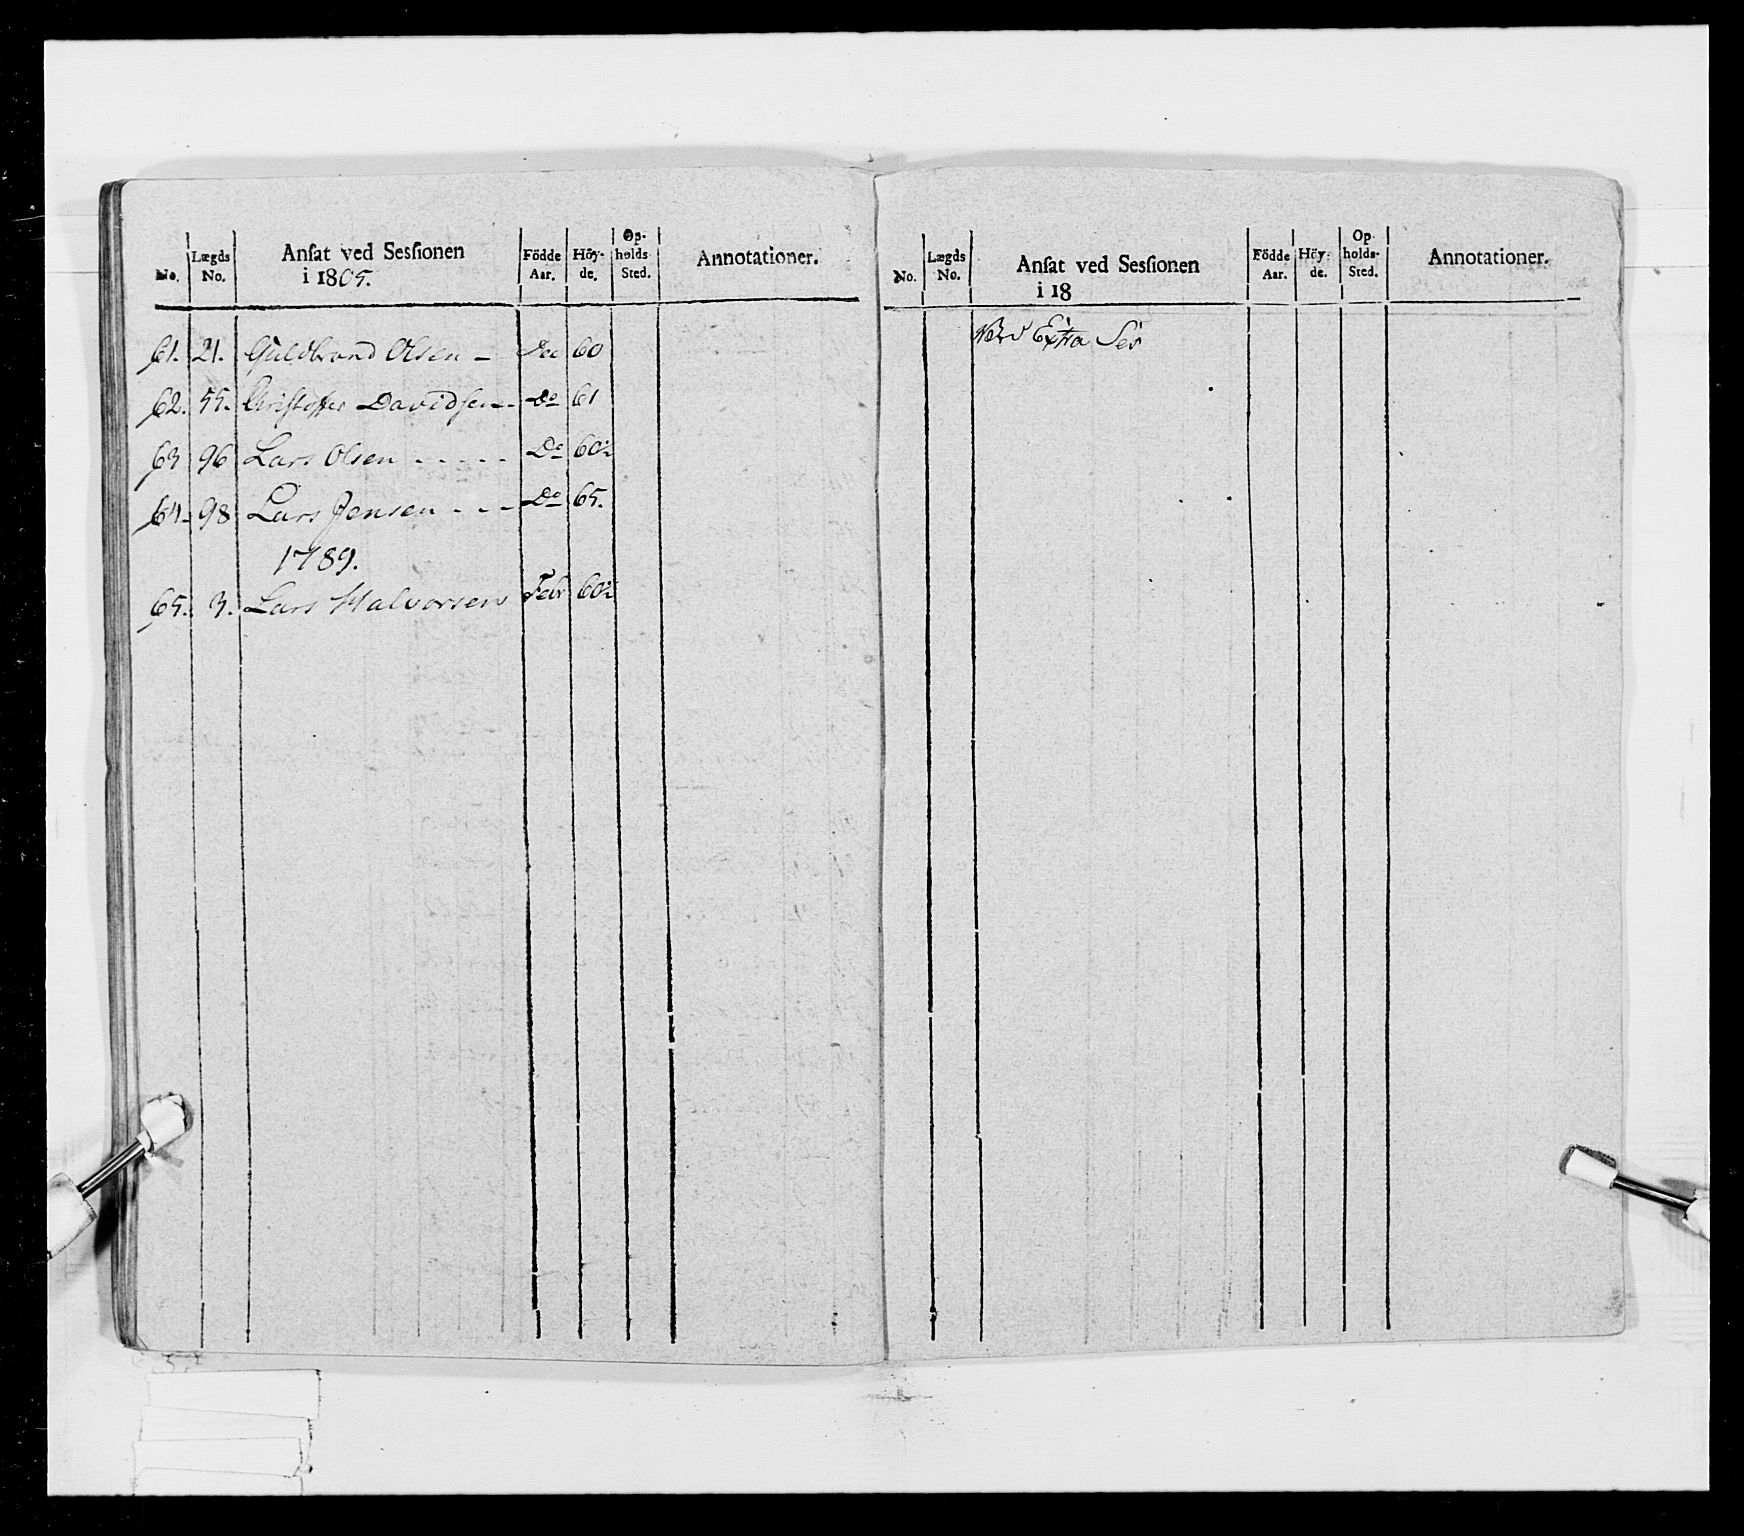 No. Lægds No. Anſat ved Sesſionen i 1805. Födde Aar. Höy-de. Op-holds-Sted. Annotationer.
61. 21. Guldbrand Olsen - Dec 60
62. 55. Christoffer Davidsen - Do 61
63 96 Lars Olsen - - - - - Do 60½
64. 98 Lars Jensen - - - Do 65.
1789.
65. 3. Lars Halvorsen Febr 60½
No. Lægds No. Anſat ved Sesſionen i 18 Födde Aar. Höy-de. Op holds-Sted. Annotationer.
Ved Extra Ses